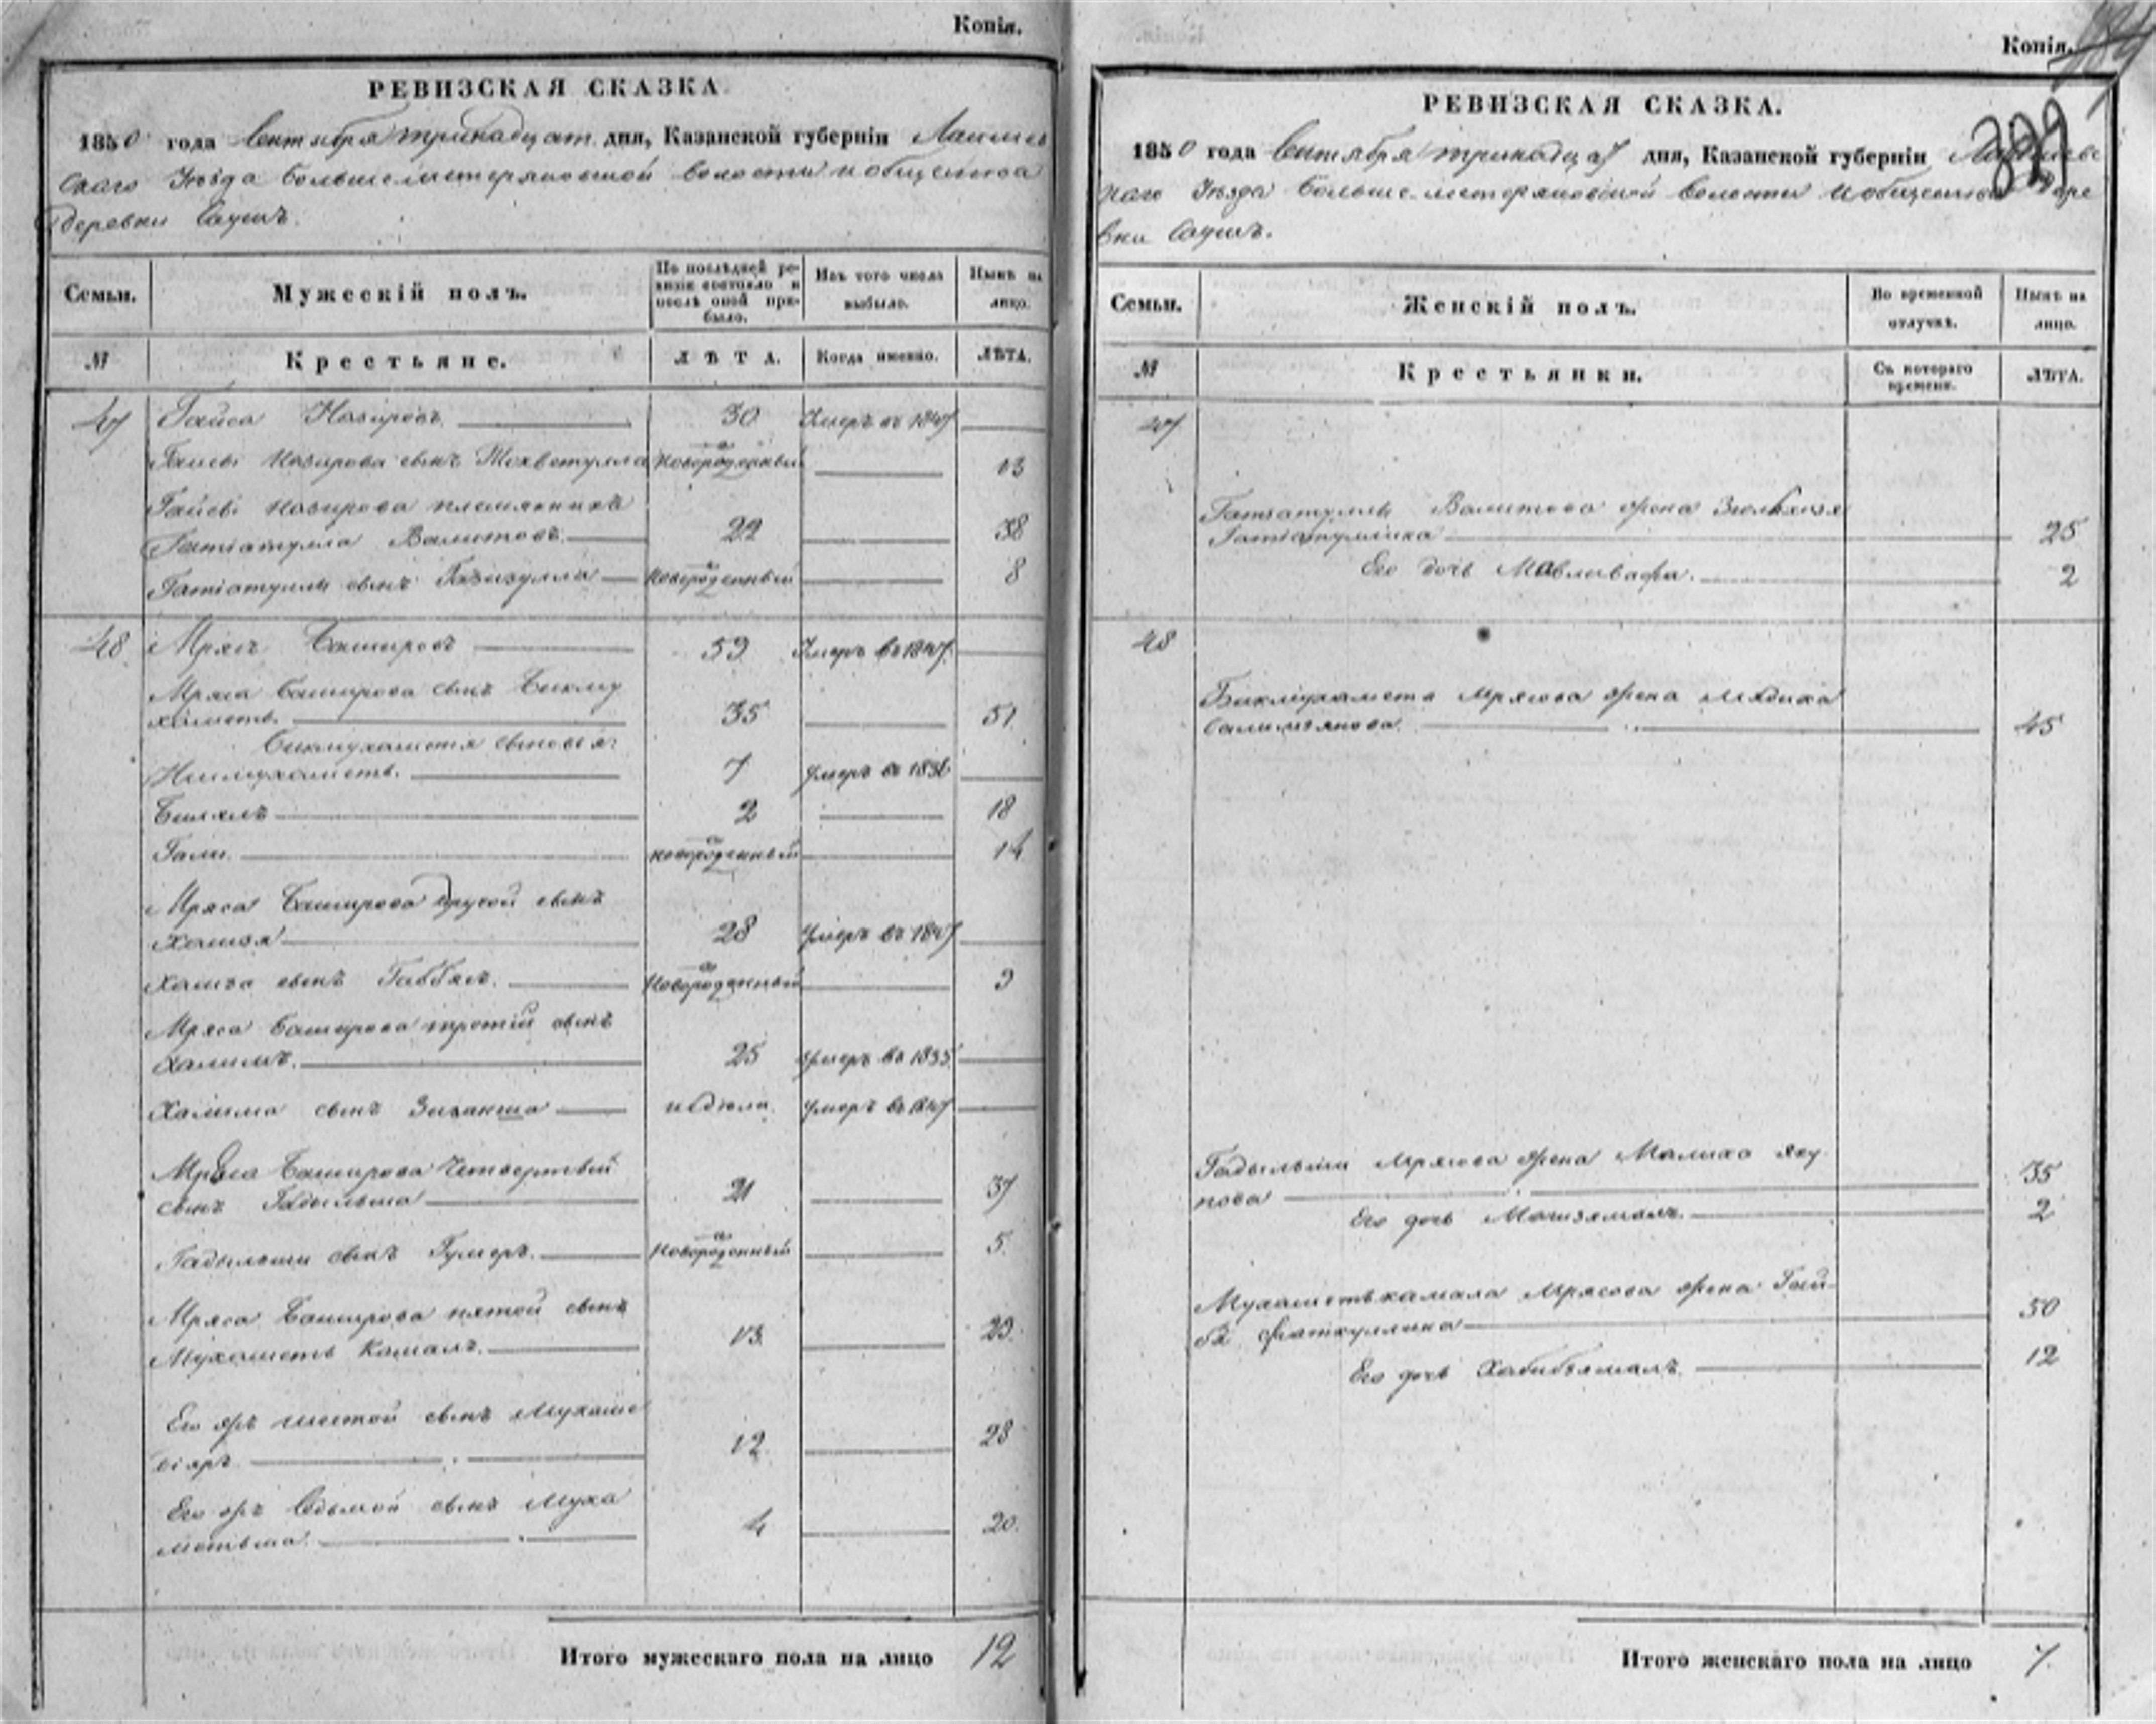 Копія.
РЕВИЗСКАЯ СКАЗКА
1850 года Сентября тринадцат. дня, Казанской губерніи Лаишев
скаго Уѣзда Большеметеряковской волости и общества
деревни Саушъ.
Семьи.
Мужескій полъ.
По послѣдней ре-
визіи состояло и
послѣ оной при-
было.
Изъ того числа
выбыло.
Нынѣ на
лицо.
№
Крестьяне.
ЛѢТА.
Когда именно.
ЛѢТА.
47 Гайса Назировъ 30 Умеръ въ 1847
Гайсы Назирова сынъ новорожденный 13
Гайсы Назирова племянникъ
Гатіатулла Валитовъ 22 38
Гатіатуллы сынъ Газизулла новорожденный 8
48 Мрясъ Башировъ 59 Умеръ въ 1847
Мряса Баширова сынъ Бикму
хаметъ. 35 51
Бикмухаметя сыновья:
7 умеръ въ 1836
Билялъ 2 18
Гали. новорожденный 14
Мряса Баширова другой сынъ
Хамзя 28 Умеръ въ 1847
Хамза сынъ Габбасъ. Новорожденный 9
Мряса Баширова третій сынъ
Халимъ. 25 Умеръ въ 1835
Халима сынъ Зиганша недѣля Умеръ въ 1847
Мряса Баширова Четвертый
сынъ Гадыльша 21 37
Гадыльши сынъ Гумеръ. Новорожденный 5
Мряса Баширова пятой сынъ
Мухаметь Камалъ. 13 29
Его жъ шестой сынъ Мухаме
діяръ 12 28
Его жъ Седьмой сынъ Муха
метьша. 4 20
Итого мужескаго пола на лицо 12
Копія.
829
РЕВИЗСКАЯ СКАЗКА.
1850 года Сентября тринадцат дня, Казанской губерніи Лаишевс
каго Уѣзда Большеметеряковской волости и общества дере
вни Саушъ.
Семьи.
Женскій полъ.
Во временной
отлучкѣ.
Нынѣ на
лицо.
№
Крестьянки.
Съ котораго
времени.
ЛѢТА.
47
Гатіатуллы Валитова жена
25
Его дочь Мавливафа. 2
48
Бикмухамета Мрясова жена Мядина
Салимзянова. 45
Гадыльши Мрясова жена Малика Яку
пова 35
Его дочь 2
Мухаметькамала Мрясова жена Гай-
ба Фаткуллина 50
Его дочь Хабибзямалъ. 12
Итого женскаго пола на лицо 7